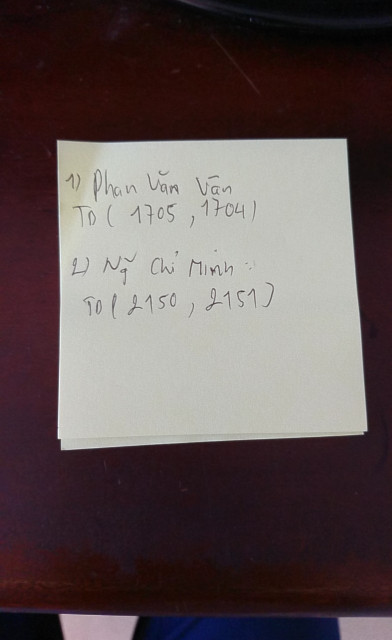 1) Phan Văn Vân
TD ( 1705 , 1704 )
2) Ng Chí Minh :
TD ( 2150 , 2151 )